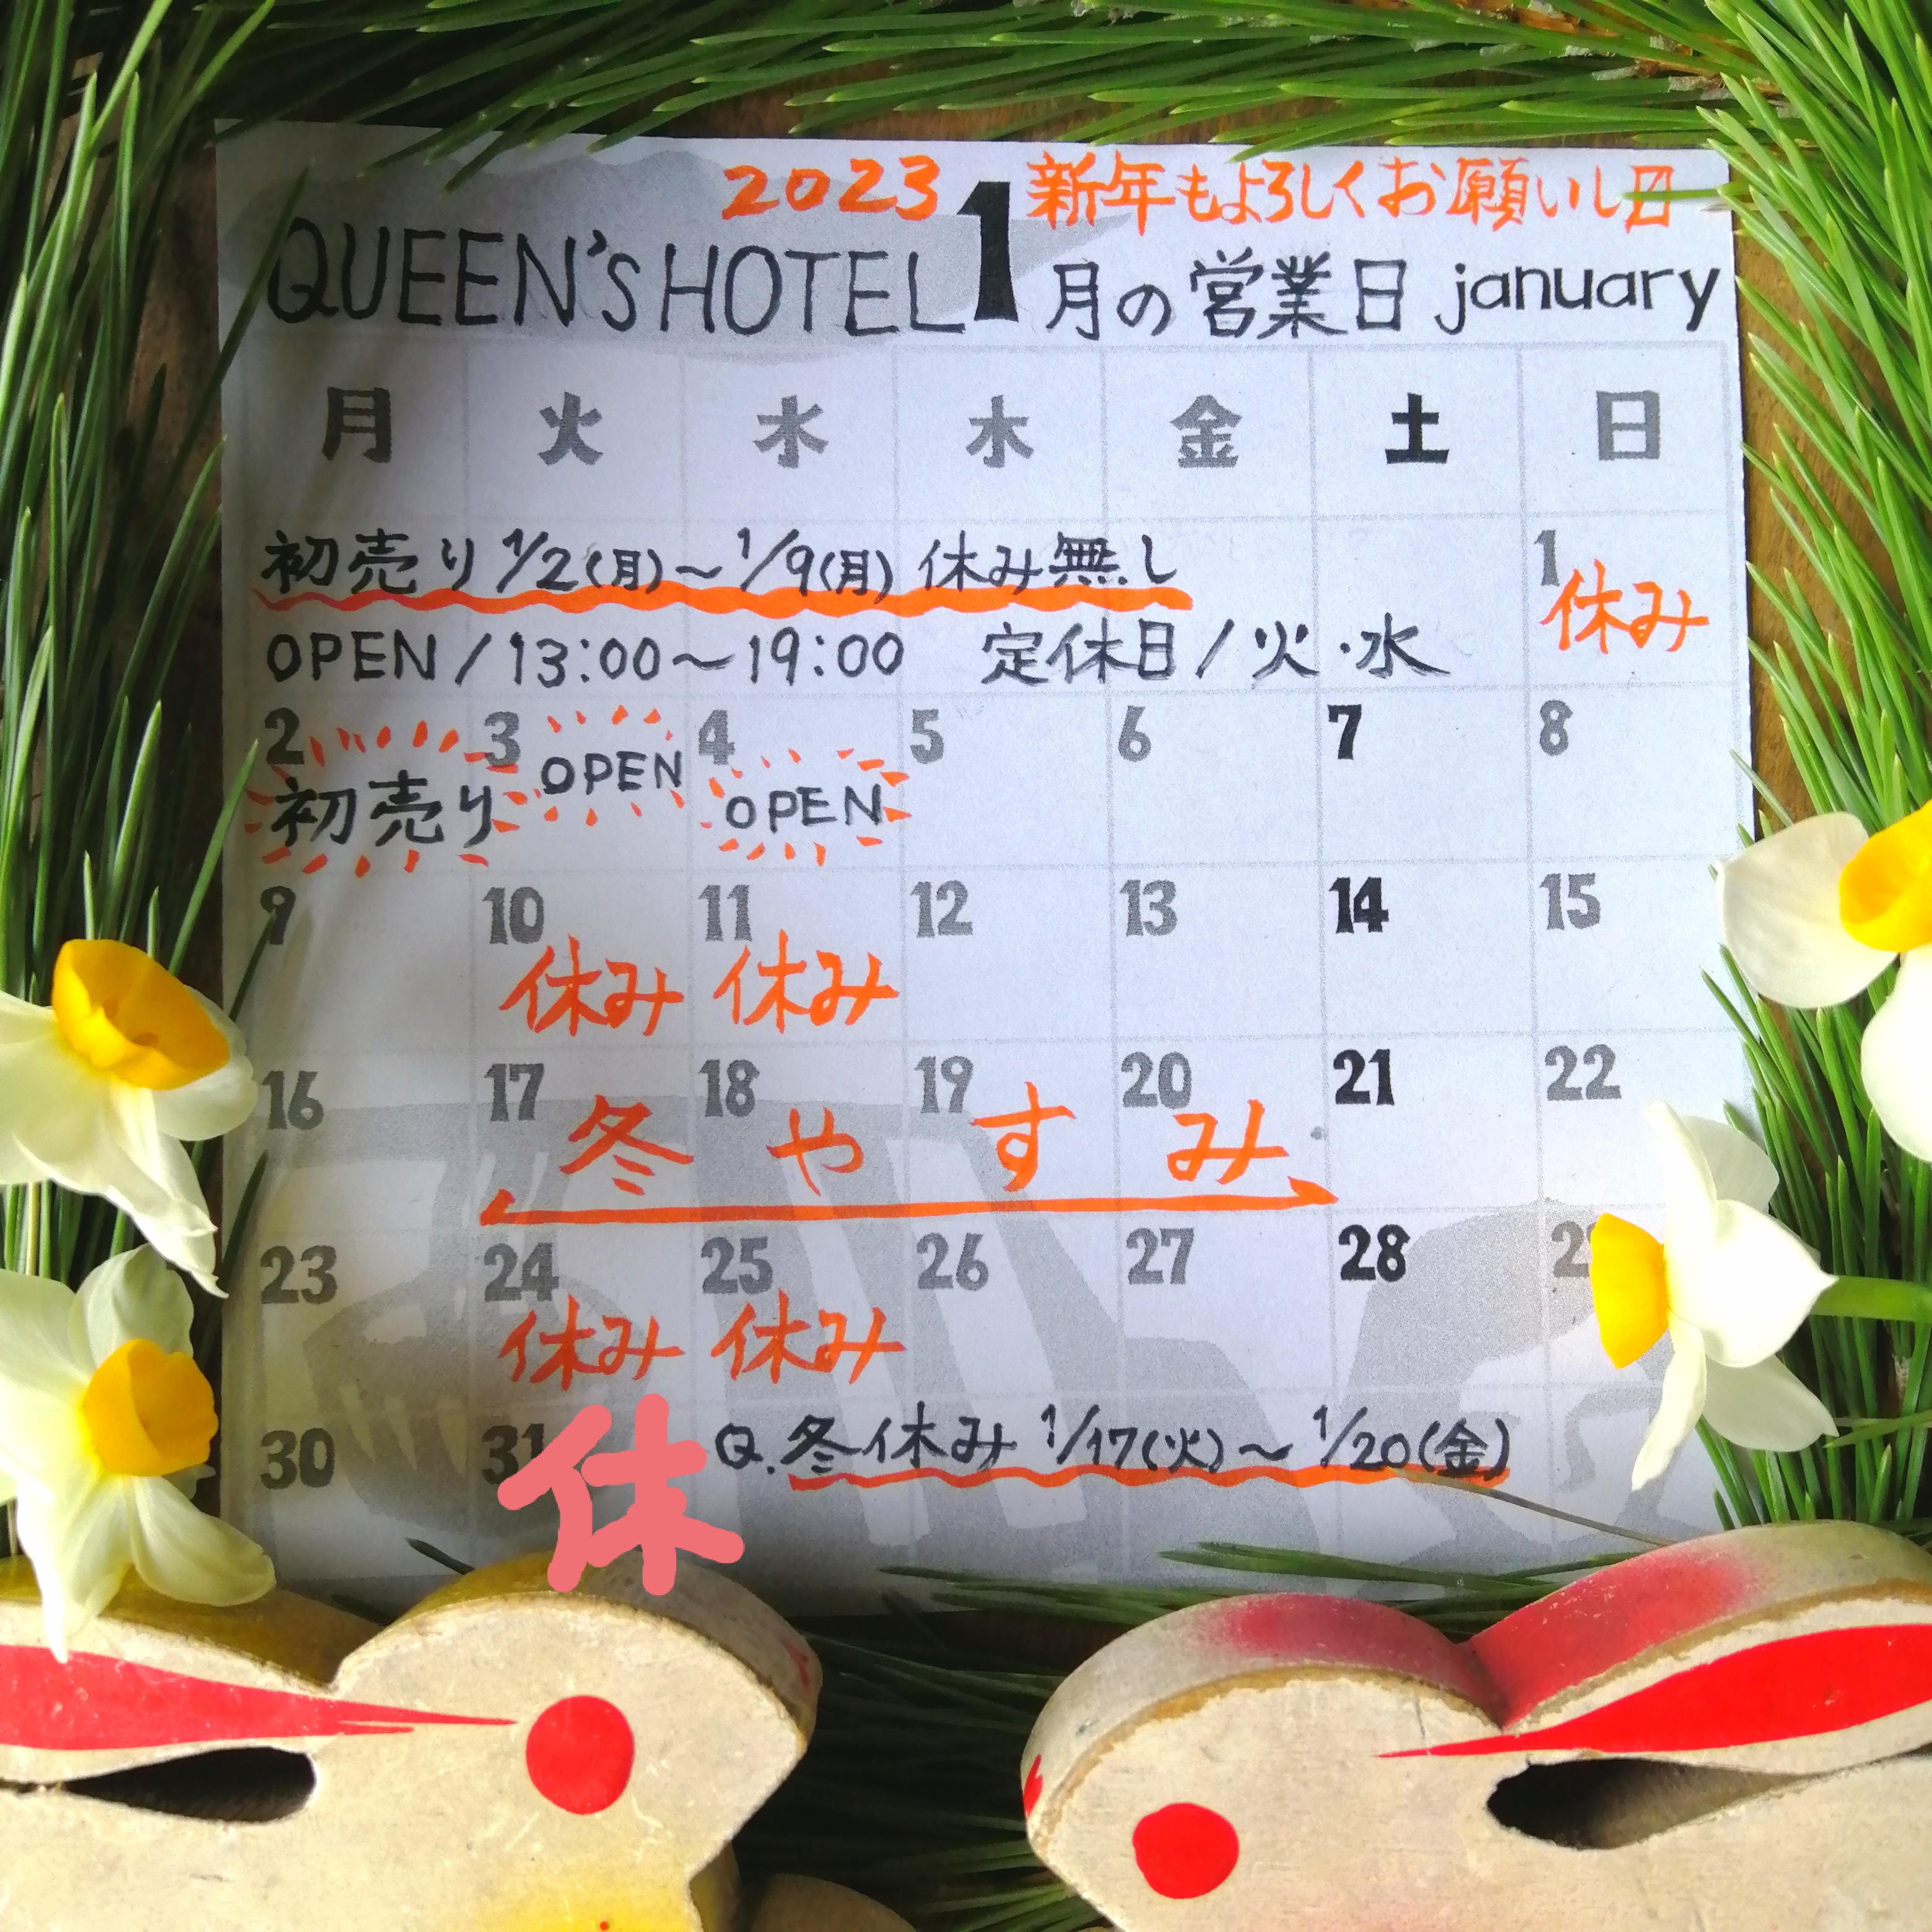 2023 新年もよろしくお願いし〼
QUEEN'S HOTEL 1月の営業日 january
月 火 水 木 金 土 日
初売り 1/2(月)〜1/9(月) 休み無し
OPEN/13:00〜19:00 定休日/火・水
1 休み
2 初売り 3 OPEN 4 OPEN 5 6 7 8
9 10 休み 11 休み 12 13 14 15
16 17 18 19 20 21 22
冬やすみ
23 24 休み 25 休み 26 27 28
30 31 休
Q.冬休み 1/17(火)〜1/20(金)